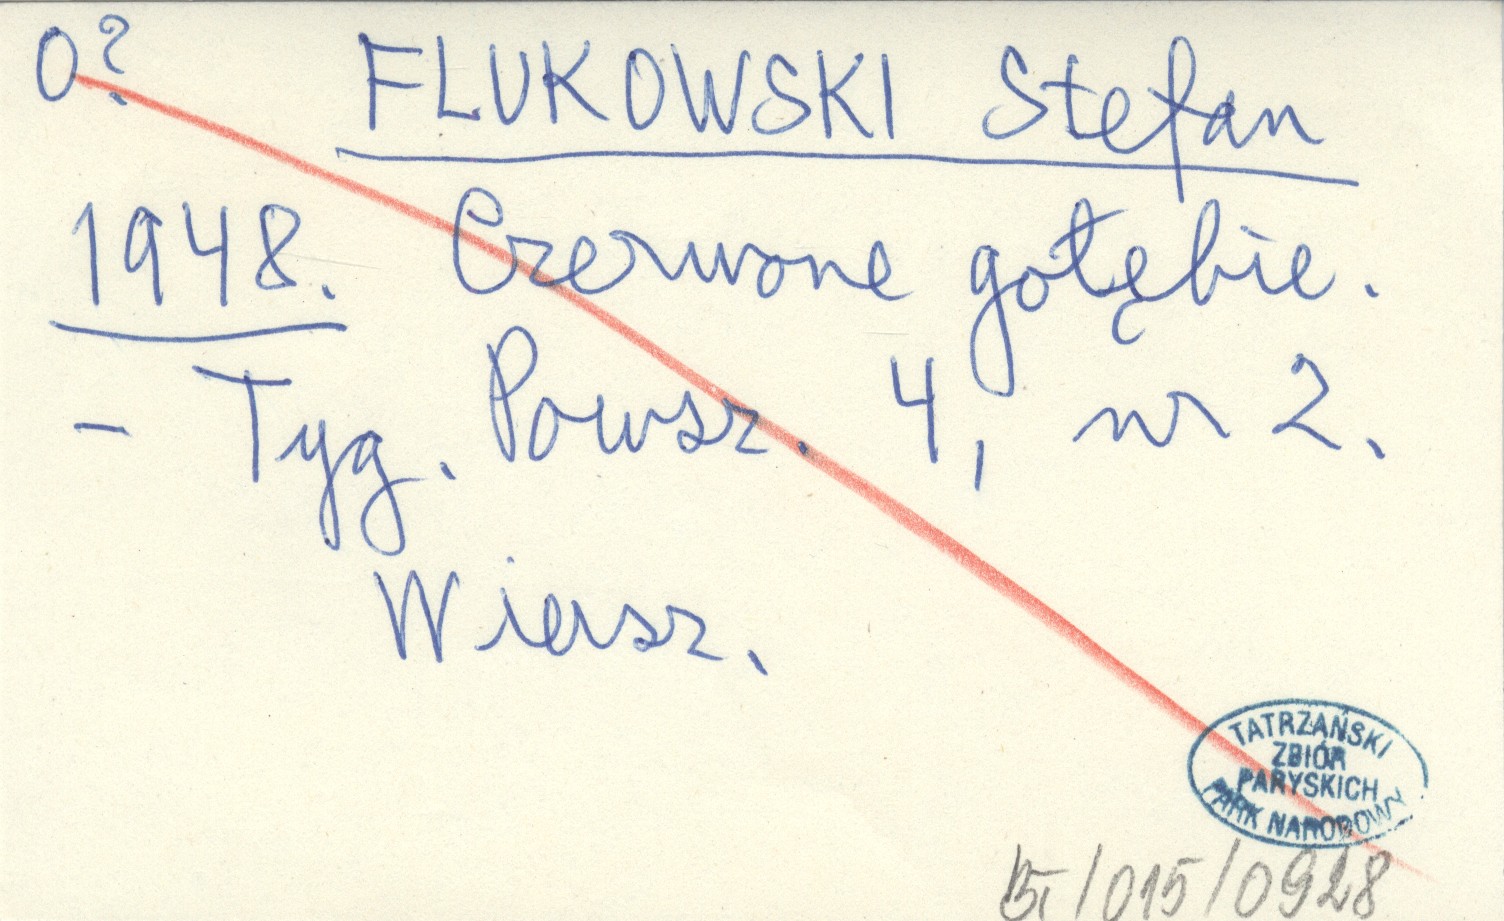 0? FLUKOWSKI Stefan
1948. Czerwone gołębie.
- Tyg. Powsz. 4, nr 2.
Wiersz.
TATRZAŃSKI
ZBIÓR
PARYSKICH
PARK NARODOWY
/015/0928